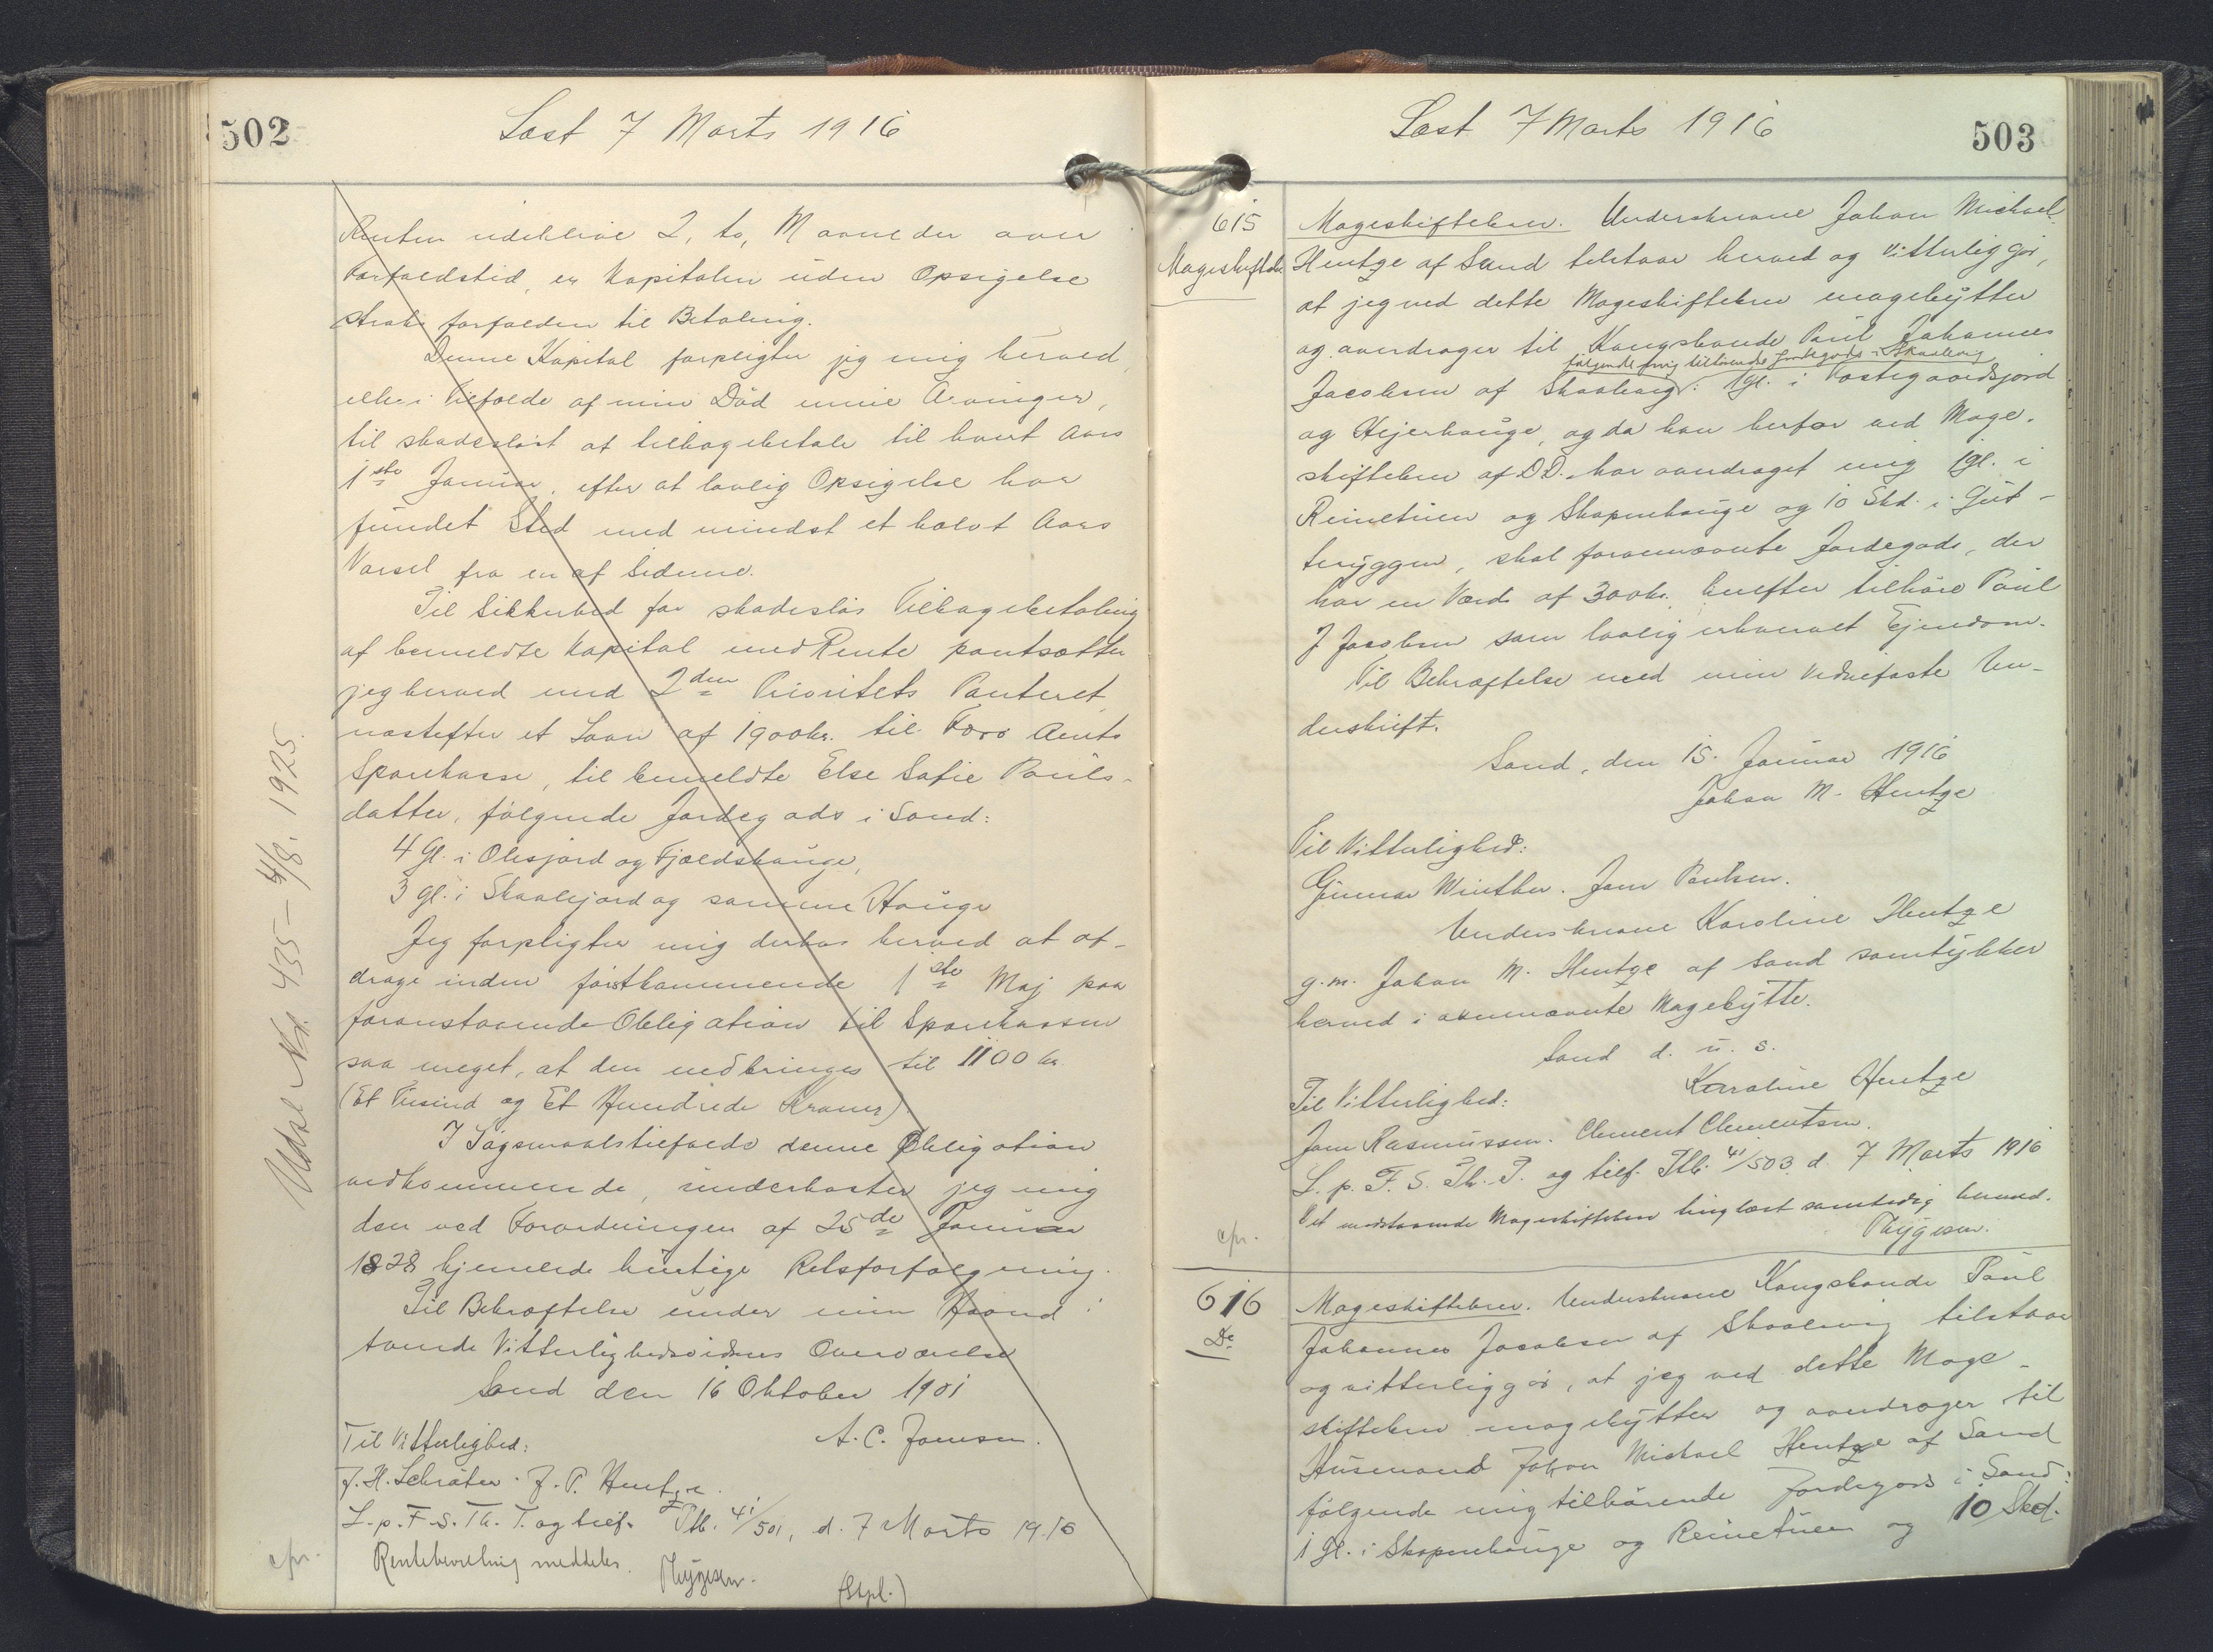 502
Læst 7 Marts 1916
Renten udeblive 2, to, Maaneder over
Forfaldstid, er Kapitalen uden Opsigelse
straks forfalden til Betaling.
Denne Kapital forpligter jeg mig herved,
eller i Tilfælde af min Død mine Arvinger,
til skadesløst at tilbagebetale til hvert Aars
1ste Januar, efter at lovlig Opsigelse har
fundet Sted med mindst et halvt Aars
Varsel fra en af Siderne.
Til Sikkerhed for skadesløs Tilbagebetaling
af bemeldte Kapital med Rente pantsætter
jeg herved med 2den Prioritets Panteret,
næstefter et Laan af 1900 kr. til Færø Amts
Sparekasse, til bemeldte Else Sofie Pouls-
datter, følgende Jordegods i Sand:
4 Gl. i Olesjord og Fjældshauge,
3 gl. i Skaalejord og samme Hauge
Jeg forpligter mig derhos herved at af-
drage inden førstkommende 1ste Maj paa
foranstaaende Obligation til Sparekassen
saa meget, at den nedbringes til 1100 kr
(Et Tusind og Et Hundrede Kroner)
I Søgsmaalstilfælde denne Obligation
vedkommende, underkaster jeg mig
den ved Forordningen af 25de Januar
1828 hjemlede hurtige Retsforfølgning.
Til Bekræftelse under min Haand i
tvende Vitterlighedsvidners Overværelse
Sand den 16 Oktober 1901
A. C. Joensen.
Til Vitterlighed:
J. H. Schrøter. J. P. Hentze.
L. p. F. S. Th. T. og tilf. Ptb. 41/501, d. 7 Marts 1916
Rentebevilling meddeles. Thygesen. (Stpl.)
cfr.
Udsl No. 435 - 4/8. 1925.
Læst 7 Marts 1916
503
615
Mageskiftebr.
Mageskiftebrev. Underskrevne Johan Michael
Hentze af Sand tilstaar herved og vitterliggør,
at jeg ved dette Mageskiftebrev magebytter
og overdrager til Kongsbonde Poul Johannes
følgende mig tilhørende Jordegods i Skaalevig
Jacobsen af Skaalevig: 1 gl. i Vestegaardsjord
og Hejerhauge, og da han herfor ved Mage-
skiftebrev af D.D. har overdraget mig 1 gl. i
Reinetuen og Skopenhauge og 10 Skd. i Gut-
teryggen, skal forannævnte Jordegods, der
har en Værdi af 300 kr., herefter tilhøre Poul
J Jacobsen som lovlig erhvervet Ejendom.
Til Bekræftelse med min vidnefaste Un-
derskrift.
Sand, den 15. Januar 1916
Johan M. Hentze
Til Vitterlighed:
Gunnar Winther. Joen Poulsen.
Underskrevne Karoline Hentze
g. m. Johan M. Hentze af Sand samtykker
herved i ovennævnte Magebytte.
Sand d. u. s.
Karoline Hentze
Til Vitterlighed:
Joen Rasmussen. Clement Clementsen.
L. p. F. S. Th. T. og tilf. Ptb. 41/503 d. 7 Marts 1916
Det modstaaende Mageskiftebrev tinglæst samtidig hermed.
Thygesen.
cfr.
616
Do
Mageskiftebrev. Underskrevne Kongsbonde Poul
Johannes Jacobsen af Skaalevig tilstaar
og vitterliggør, at jeg ved dette Mage-
skiftebrev magebytter og overdrager til
Husmand Johan Michael Hentze af Sand
følgende mig tilhørende Jordegods i Sand:
1 gl. i Skopenhauge og Reinetuen og 10 Skd.